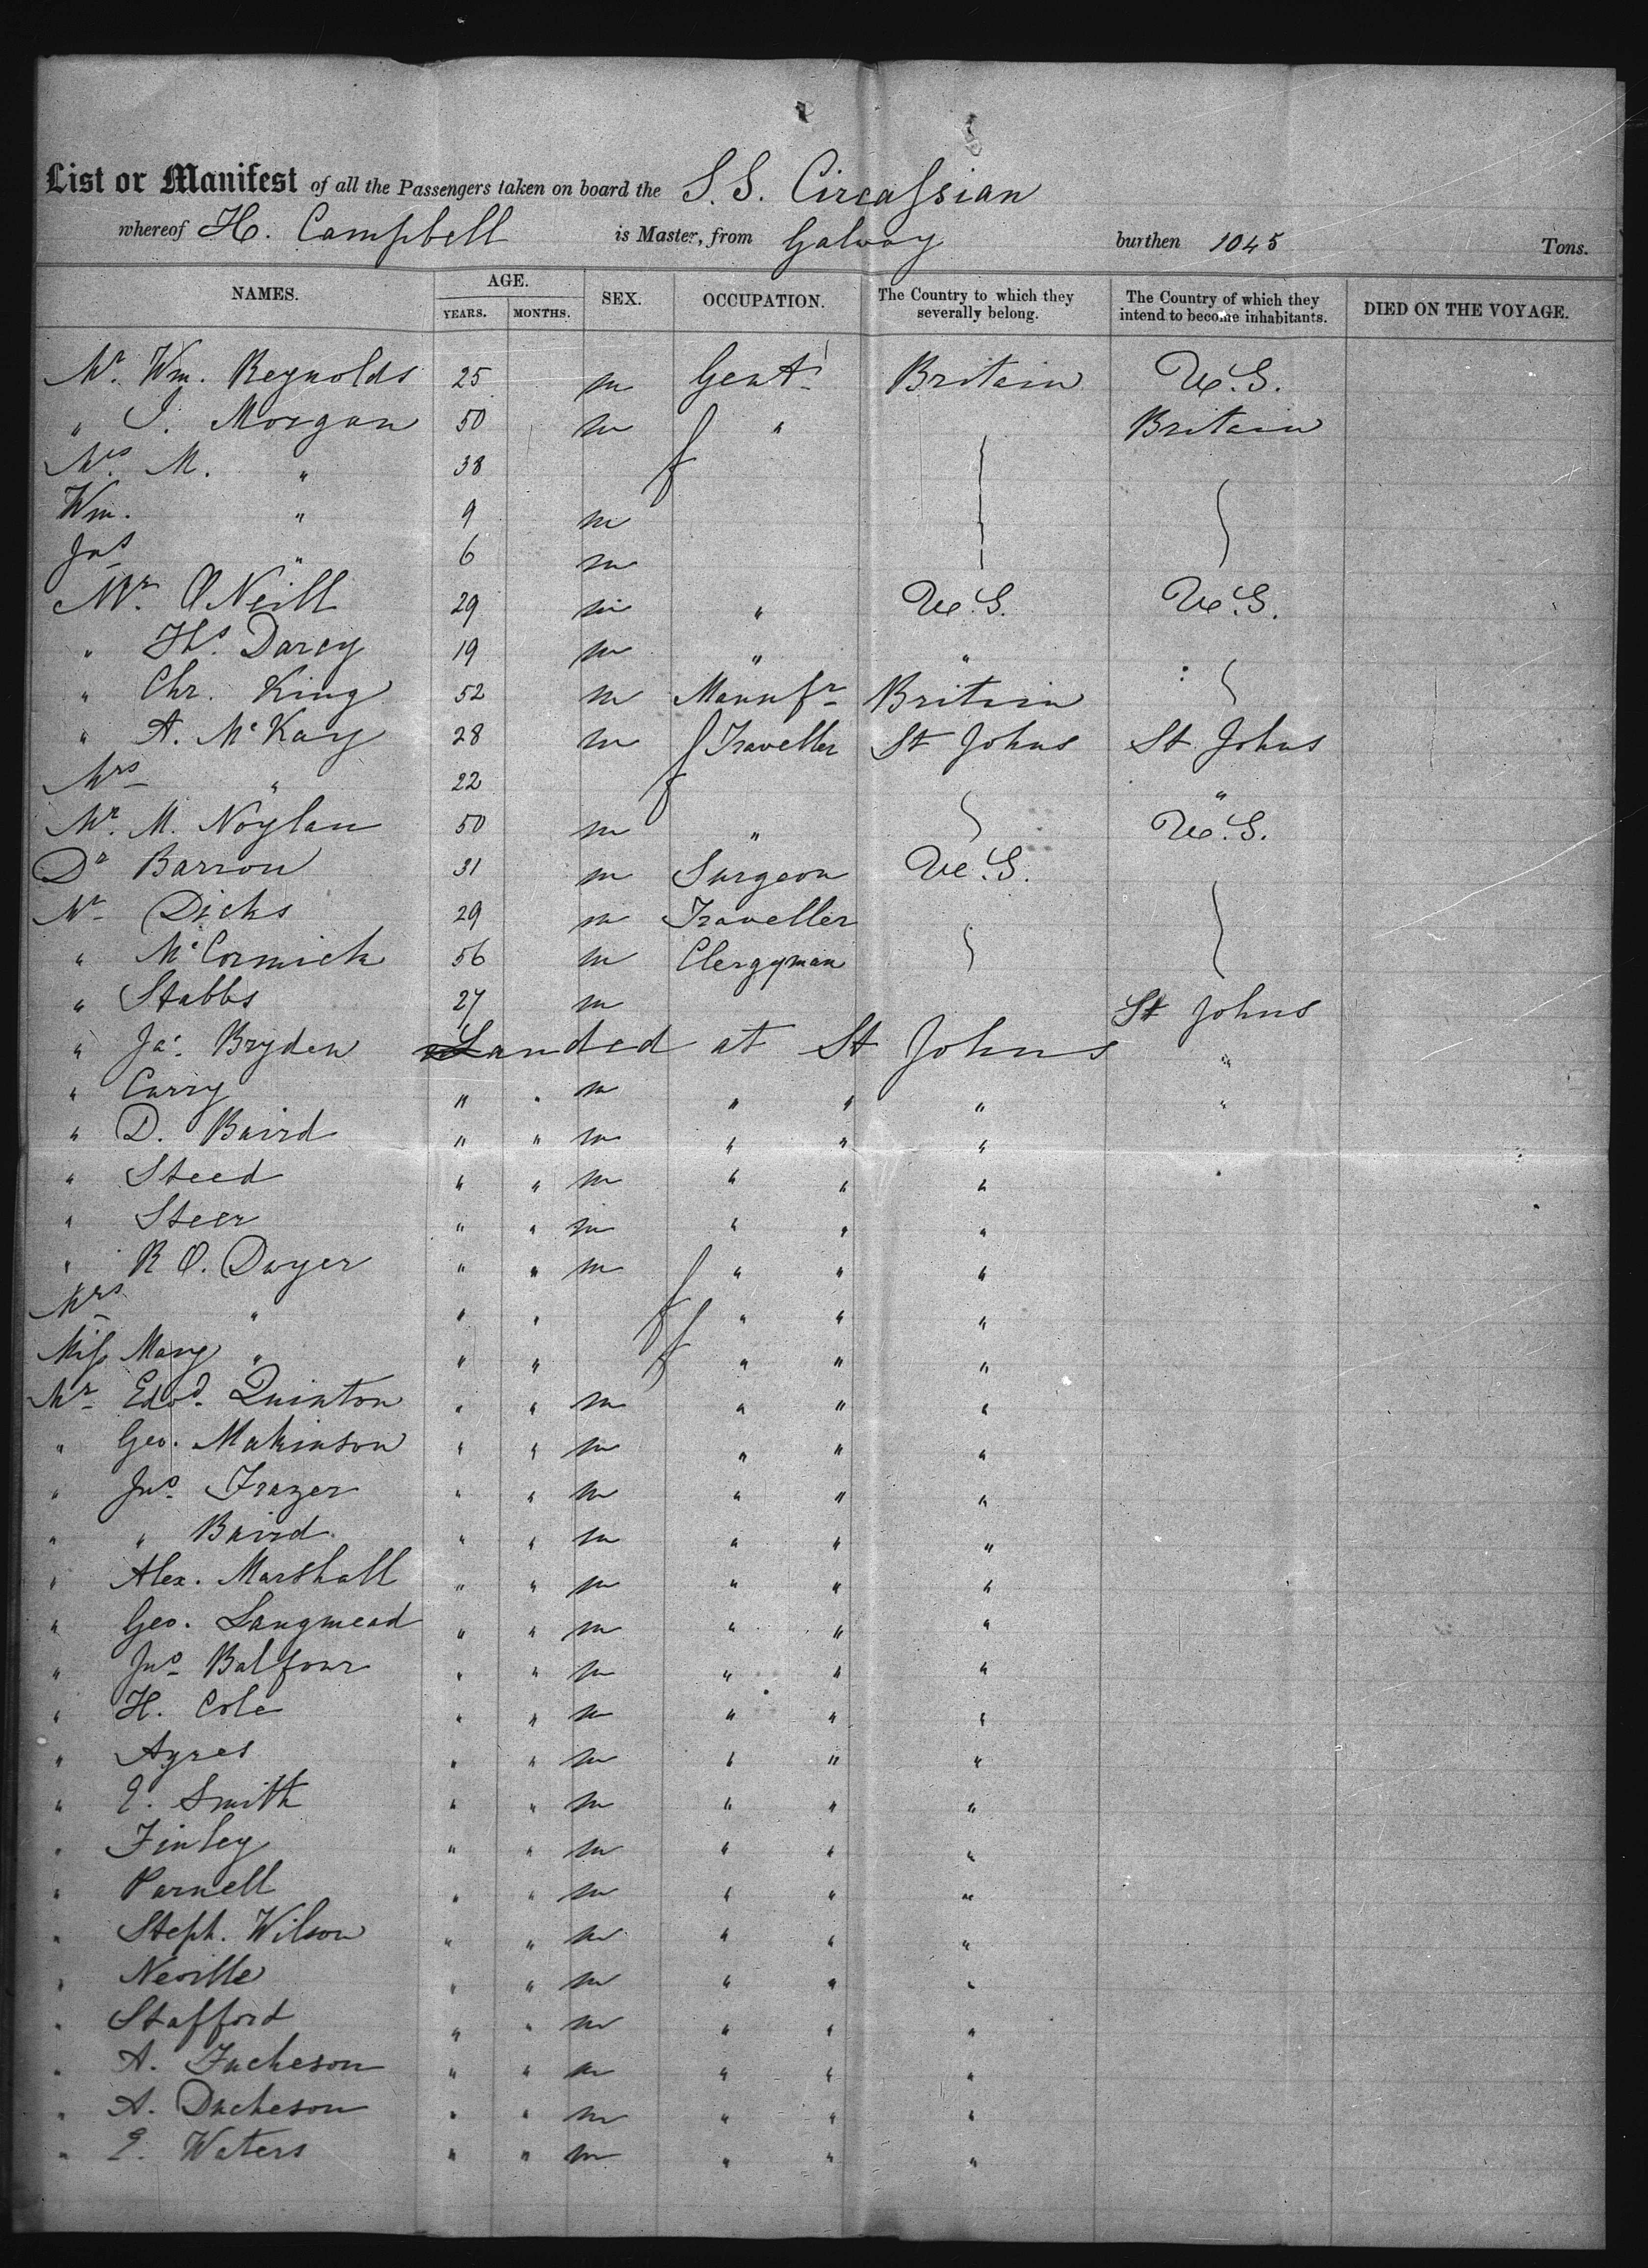 List or Manifest of all the Passengers taken on board the S.S. Circassian
whereof H. Campbell is Master, from Galway burthen 1045 Tons.
NAMES. AGE. YEARS. MONTHS. SEX. OCCUPATION. The Country to which they severally belong. The Country of which they intend to become inhabitants. DIED ON THE VOYAGE.
Mr. Wm. Reynolds 25 m Gent Britain U.S.
" J. Morgan 50 m " Britain
Mrs. M. " 38 f
Wm. " 9 m
Jas " 6 m
Mr. O'Neill 29 m " U.S. U.S.
" Ths. Darcy 19 m " "
" Chr. King 52 m Manufr Britain
" A. McKay 28 m Traveller St Johns St Johns
Mrs " 22 f "
Mr. M. Noylan 50 m " U.S.
Dr Barron 31 m Surgeon U.S.
Mr Dicks 29 m Traveller
" McCormick 56 m Clergyman
" Stabbs 27 m St Johns
" Ja. Bryden Landed at St Johns "
" Carry " " m " " " "
" D. Baird " " m " " "
" Steed " " m " " "
" Steer " " m " " "
" R O. Dwyer " " m " " "
Mrs " " " f " " "
Miss Mary " " " f " " "
Mr Edwd. Quinton " " m " " "
" Geo. Makinson " " m " " "
" Jno. Frazer " " m " " "
" " Baird. " " m " " "
" Alex. Marshall " " m " " "
" Geo. Langmead " " m " " "
" Jno Balfour " " m " " "
" H. Cole " " m " " "
" Ayres " " m " " "
" E. Smith " " m " " "
" Finley " " m " " "
" Parnell " " m " " "
" Steph. Wilson " " m " " "
" Neville " " m " " "
" Stafford " " m " " "
" A. Jucheson " " m " " "
" A. Ducheson " " m " " "
" E. Waters " " m " " "